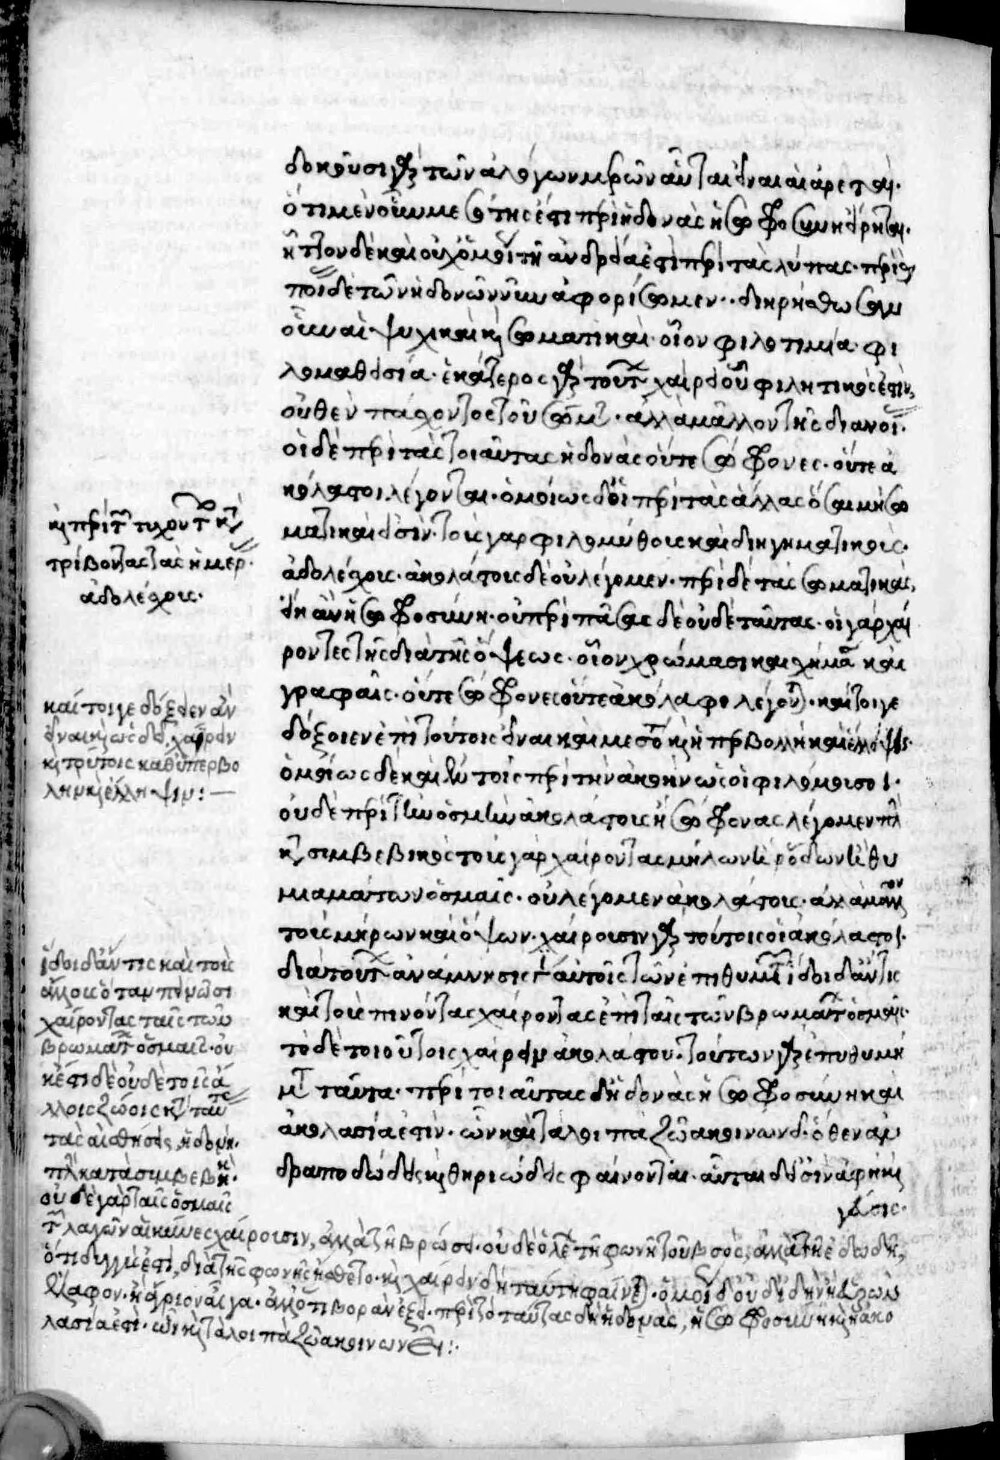 δοκοῦσι γὰρ τῶν ἀλόγων μερῶν αὗται εἶναι αἱ ἀρεταί.
ὅτι μὲν οὖν μεσότης ἐστὶ περὶ ἡδονὰς ἡ σωφροσύνη εἴρηται.
ἧττον δὲ καὶ οὐχ ὁμοίως τῇ ἀνδρεία ἐστὶ περὶ τὰς λύπας. περὶ
ποίας δὲ τῶν ἡδονῶν νῦν ἀφορίσωμεν. διῃρήσθωσαν
οὖν αἱ ψυχικαὶ καὶ σωματικαί. οἷον φιλοτιμία. φι
λομαθεσία. ἑκάτερος γὰρ τούτων χαίρει οὗ φιλητικός ἐστιν,
οὐθὲν πάσχοντος τοῦ σώματος. ἀλλὰ μᾶλλον τῆς διανοίας.
οἱ δὲ περὶ τὰς τοιαύτας ἡδονὰς οὔτε σώφρονες. οὔτε ἀ
κόλαστοι λέγονται. ὁμοίως δὲ οἱ περὶ τὰς ἄλλας ὅσαι μὴ σω
ματικαί εἰσιν. τοὺς γὰρ φιλομύθους καὶ διηγηματικοὺς.
ἀδολέσχους. ἀκολάστους δὲ οὐ λέγομεν. περὶ δὲ τὰς σωματικὰς,
εἴη ἂν ἡ σωφροσύνη. οὐ περὶ πάσας δὲ οὐδὲ ταύτας. οἱ γὰρ χαί
ροντες τῆς διὰ τῆς ὄψεως. οἷον χρώμασι καὶ σχήμασι καὶ
γραφαῖς. οὔτε σώφρονες οὔτε ἀκόλαστοι λέγονται. καίτοι γε
δόξοιεν ἐπὶ τούτοις εἶναι καὶ μεσότης καὶ ὑπερβολὴ καὶ ἔλλειψις.
ὁμοίως δὲ καὶ ἐν τοῖς περὶ τὴν ἀκοὴν ὡς οἱ φιλόμουσοι.
οὐδὲ περὶ τὴν ὀσμὴν ἀκολάστους ἢ σώφρονας λέγομεν πλὴν
κατὰ συμβεβηκός τοὺς γὰρ χαίροντας μήλων ἢ ῥόδων ἢ θυ
μιαμάτων ὀσμαῖς. οὐ λέγομεν ἀκολάστους. ἀλλὰ μᾶλλον
τοὺς μύρων καὶ ὄψων. χαίρουσιν γὰρ τούτοις οἱ ἀκόλαστοι.
διὰ τούτων ἀνάμνησις γίνεται αὐτοῖς τῶν ἐπιθυμημάτων ἴδοι δ' ἄν τις
καὶ τοὺς πεινῶντας χαίροντας ἐπὶ ταῖς τῶν βρωμάτων ὀσμαῖς.
τὸ δὲ τοιούτοις χαίρειν ἀκολάστου. τούτων γὰρ ἐπιθυμή
ματα ταῦτα. περὶ τοιαύτας δὴ ἡδονὰς ἡ σωφροσύνη καὶ
ἀκολασία ἐστίν. ὧν καὶ τἆλλα ζῶα κοινωνεῖ. ὅθεν ἀν
δραποδώδεις καὶ θηριώδεις φαίνονται. αὗται δέ εἰσιν ἁφὴ καὶ
γεῦσις.
καὶ περὶ τῶν τυχόντων κατα
τρίβοντας τὰς ἡμέρας.
ἀδολέσχους.
καίτοι γε δόξειεν ἂν
εἶναι καὶ ὡς δεῖ χαίρειν
καὶ τούτοις καθ' ὑπερβο
λὴν καὶ ἔλλειψιν: —
ἴδοι δ' ἄν τις καὶ τοὺς
ἄλλους ὅταν πεινῶσι
χαίροντας ταῖς τῶν
βρωμάτων ὀσμαῖς. οὐ
κ ἔστι δὲ οὐδὲ τοῖς ἄ
λλοις ζώοις κατὰ ταύ
τας αἰσθήσεις, ἡδονή.
πλὴν κατὰ συμβεβηκός.
οὐδὲ γὰρ ταῖς ὀσμαῖς
τῶν λαγωῶν αἱ κύνες χαίρουσιν, ἀλλὰ τῇ βρώσει. οὐδὲ ὁ λέων τῇ φωνῇ τοῦ βοός, ἀλλὰ τῇ ἐδωδῇ,
ὅτι δ' ἐγγύς ἐστι, διὰ τῆς φωνῆς ἤσθετο. καὶ χαίρειν δὴ ταύτῃ φαίνεται. ὁμοίως δ' οὐδ' ἰδὼν ἢ εὑρὼν
ἔλαφον. ἢ ἄγριον αἶγα. ἀλλ' ὅτι βορὰν ἕξει. περὶ τὰς τοιαύτας δὴ ἡδονὰς, ἡ σωφροσύνη καὶ ἡ ἀκο
λασία ἐστί. ὧν καὶ τὰ λοιπὰ ζῶα κοινωνεῖ: